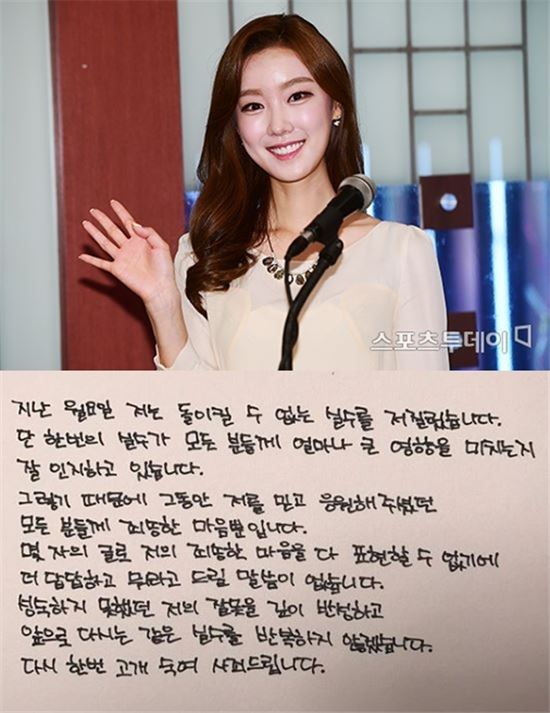 스포츠투데이
지난 월요일 저는 돌이킬 수 없는 실수를 저질렀습니다.
단 한번의 실수가 모든 분들께 얼마나 큰 영향을 미치는지
잘 인지하고 있습니다.
그렇기 때문에 그동안 저를 믿고 응원해주셨던
모든 분들께 죄송한 마음뿐입니다.
몇 자의 글로 저의 죄송한 마음을 다 표현할 수 없기에
더 답답하고 뭐라고 드릴 말씀이 없습니다.
성숙하지 못했던 저의 잘못을 깊이 반성하고
앞으로 다시는 같은 실수를 반복하지 않겠습니다.
다시 한번 고개 숙여 사죄드립니다.